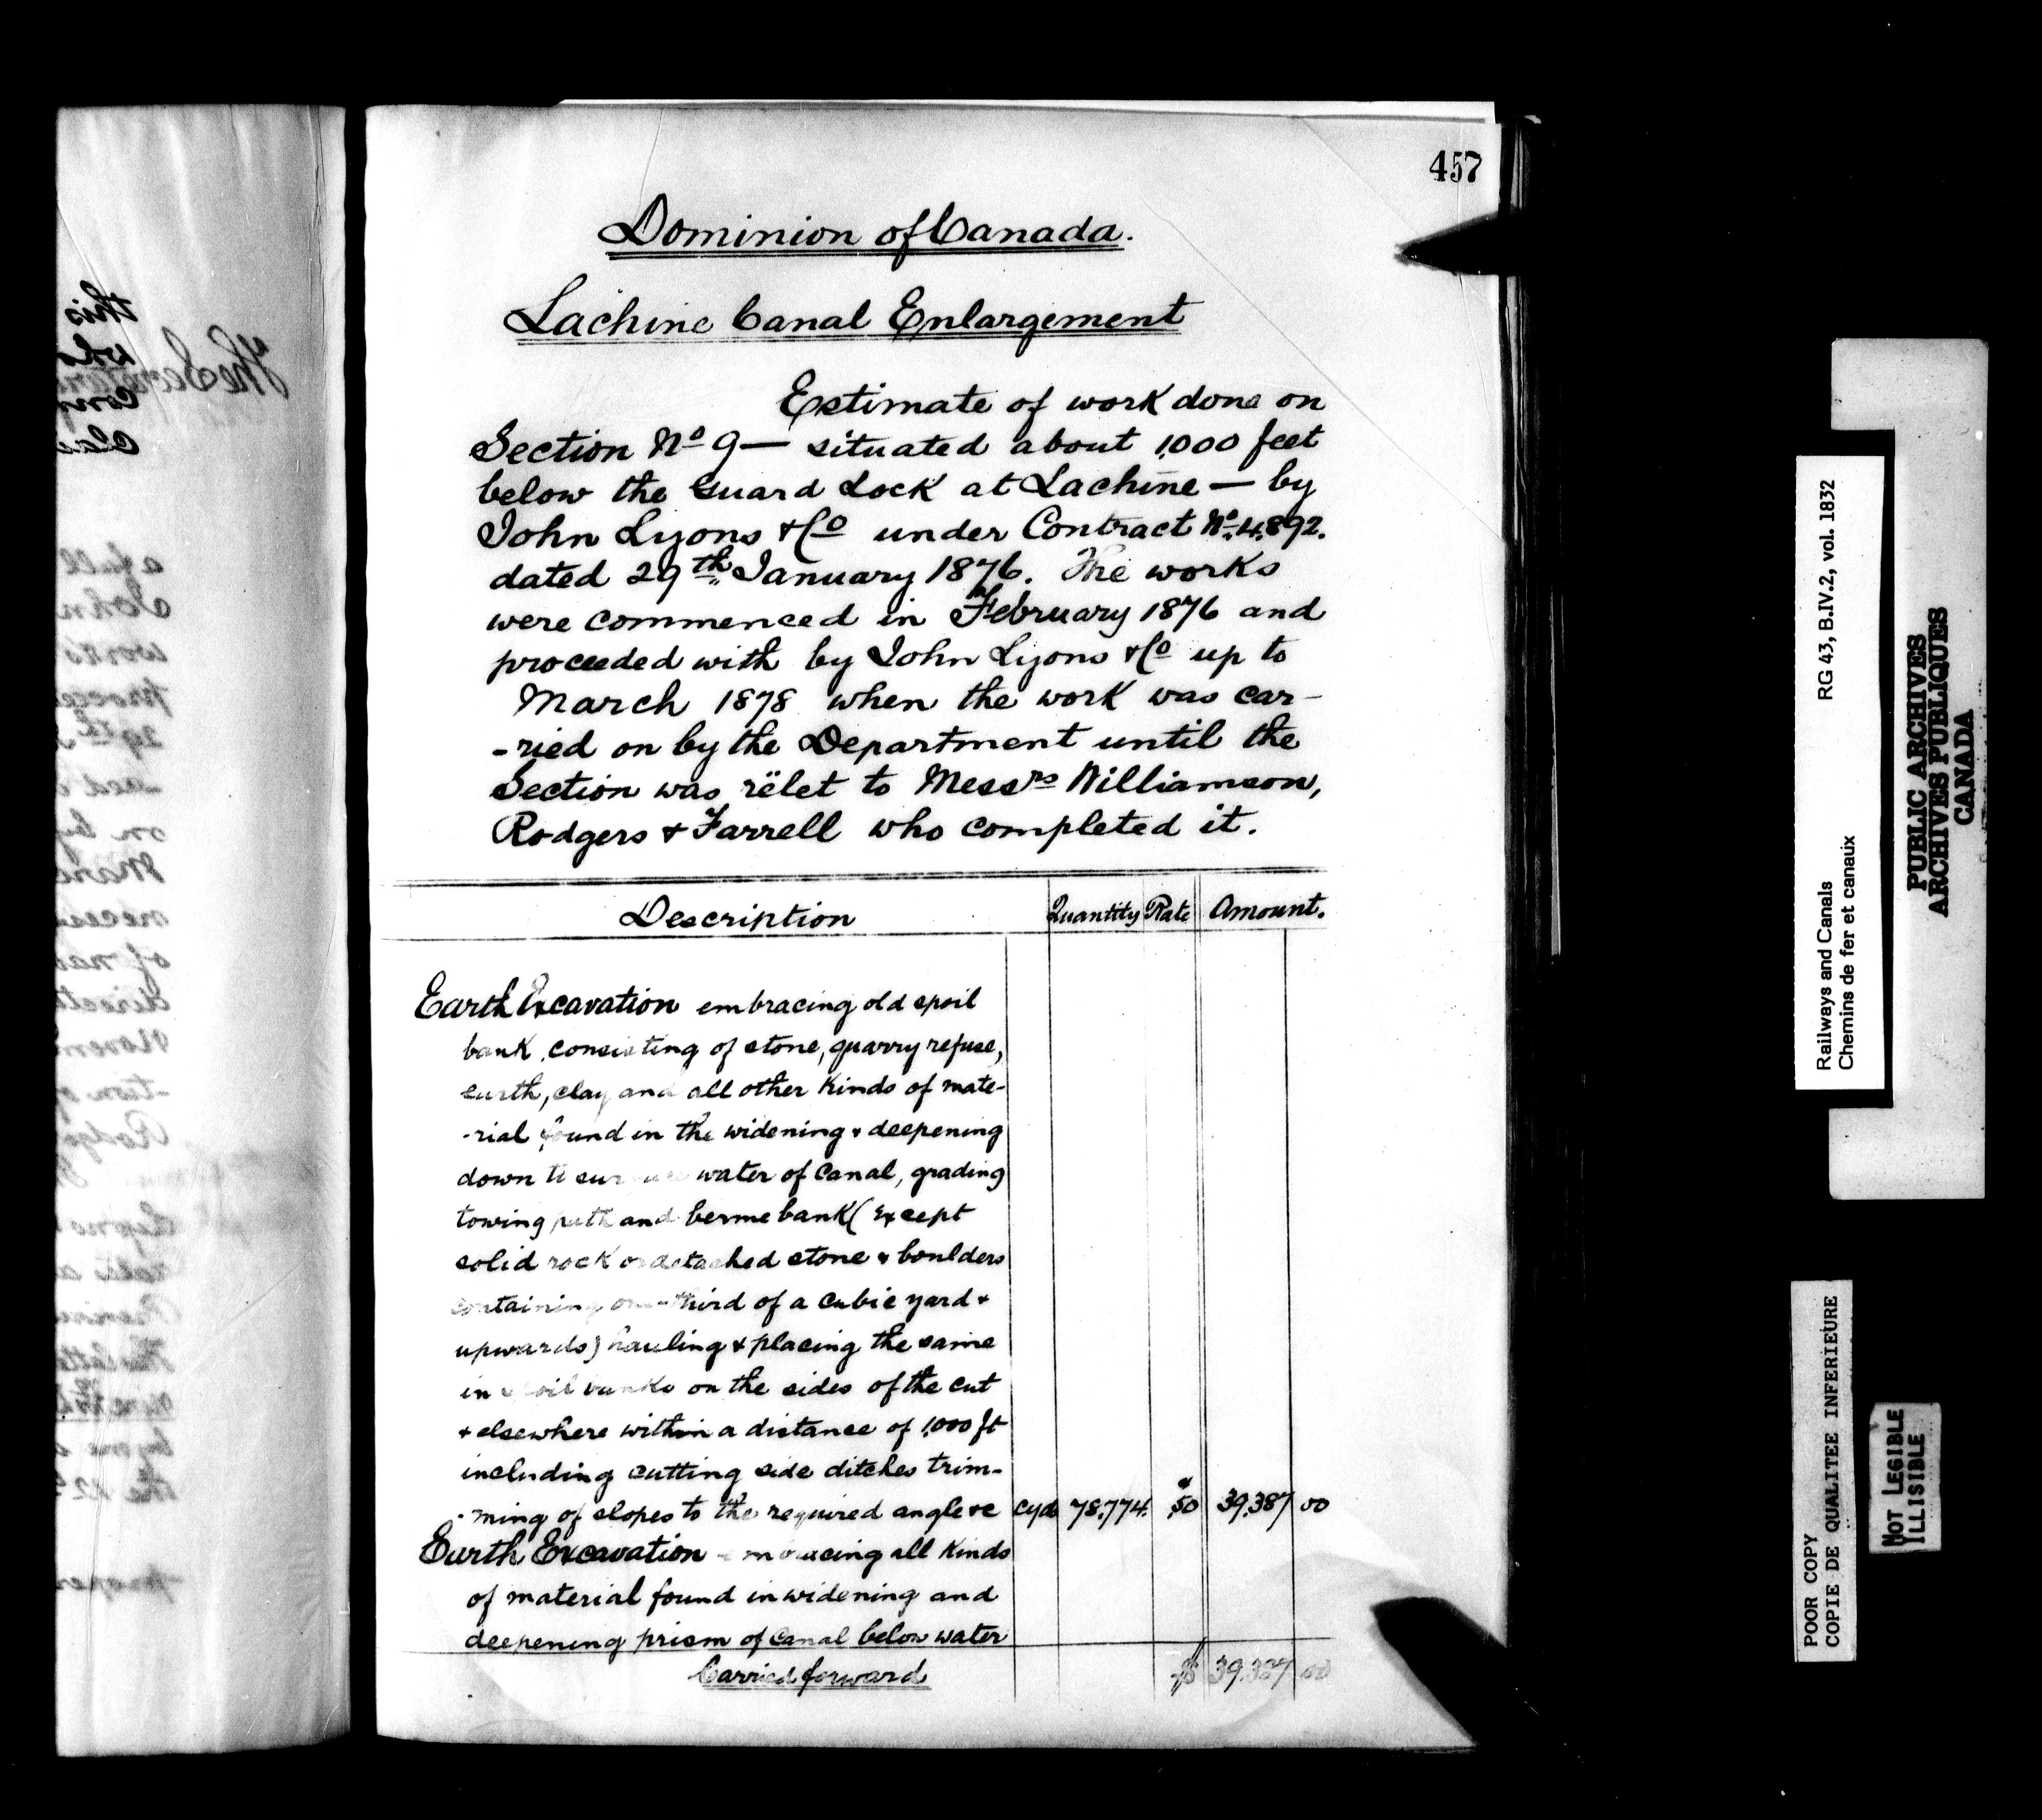 457
Dominion of Canada.
Lachine Canal Enlargement
Estimate of work done on
Section No 9 — situated about 1,000 feet
below the Guard Lock at Lachine — by
John Lyons & Co under Contract No. 4,892.
dated 29th January 1876. The works
were commenced in February 1876 and
proceeded with by John Lyons & Co up to
March 1878 when the work was car-
-ried on by the Department until the
Section was rëlet to Messrs Williamson,
Rodgers & Farrell who completed it.
Description Quantity Rate Amount.
Earth Excavation embracing old spoil
bank, consisting of stone, quarry refuse,
earth, clay and all other kinds of mate-
-rial found in the widening & deepening
down to surface water of Canal, grading
towing path and berme bank (Except
solid rock or detached stone & boulders
containing one-third of a cubic yard &
upwards) hauling & placing the same
in spoil banks on the sides of the cut
& elsewhere within a distance of 1,000 ft
including cutting side ditches trim-
-ming of slopes to the required angle &c Cyds 78,774. $.50 39,387 00
Earth Excavation embracing all kinds
of material found in widening and
deepening prism of Canal below water
Carried forward $ 39,387 00
this
The Secretary
a full
John
works
29th
on by
of
directi
-tion of
Lyons
by one
Railways and Canals RG 43, B.IV.2, vol. 1832
Chemins de fer et canaux
PUBLIC ARCHIVES
ARCHIVES PUBLIQUES
CANADA
POOR COPY
COPIE DE QUALITEE INFERIEURE
NOT LEGIBLE
ILLISIBLE